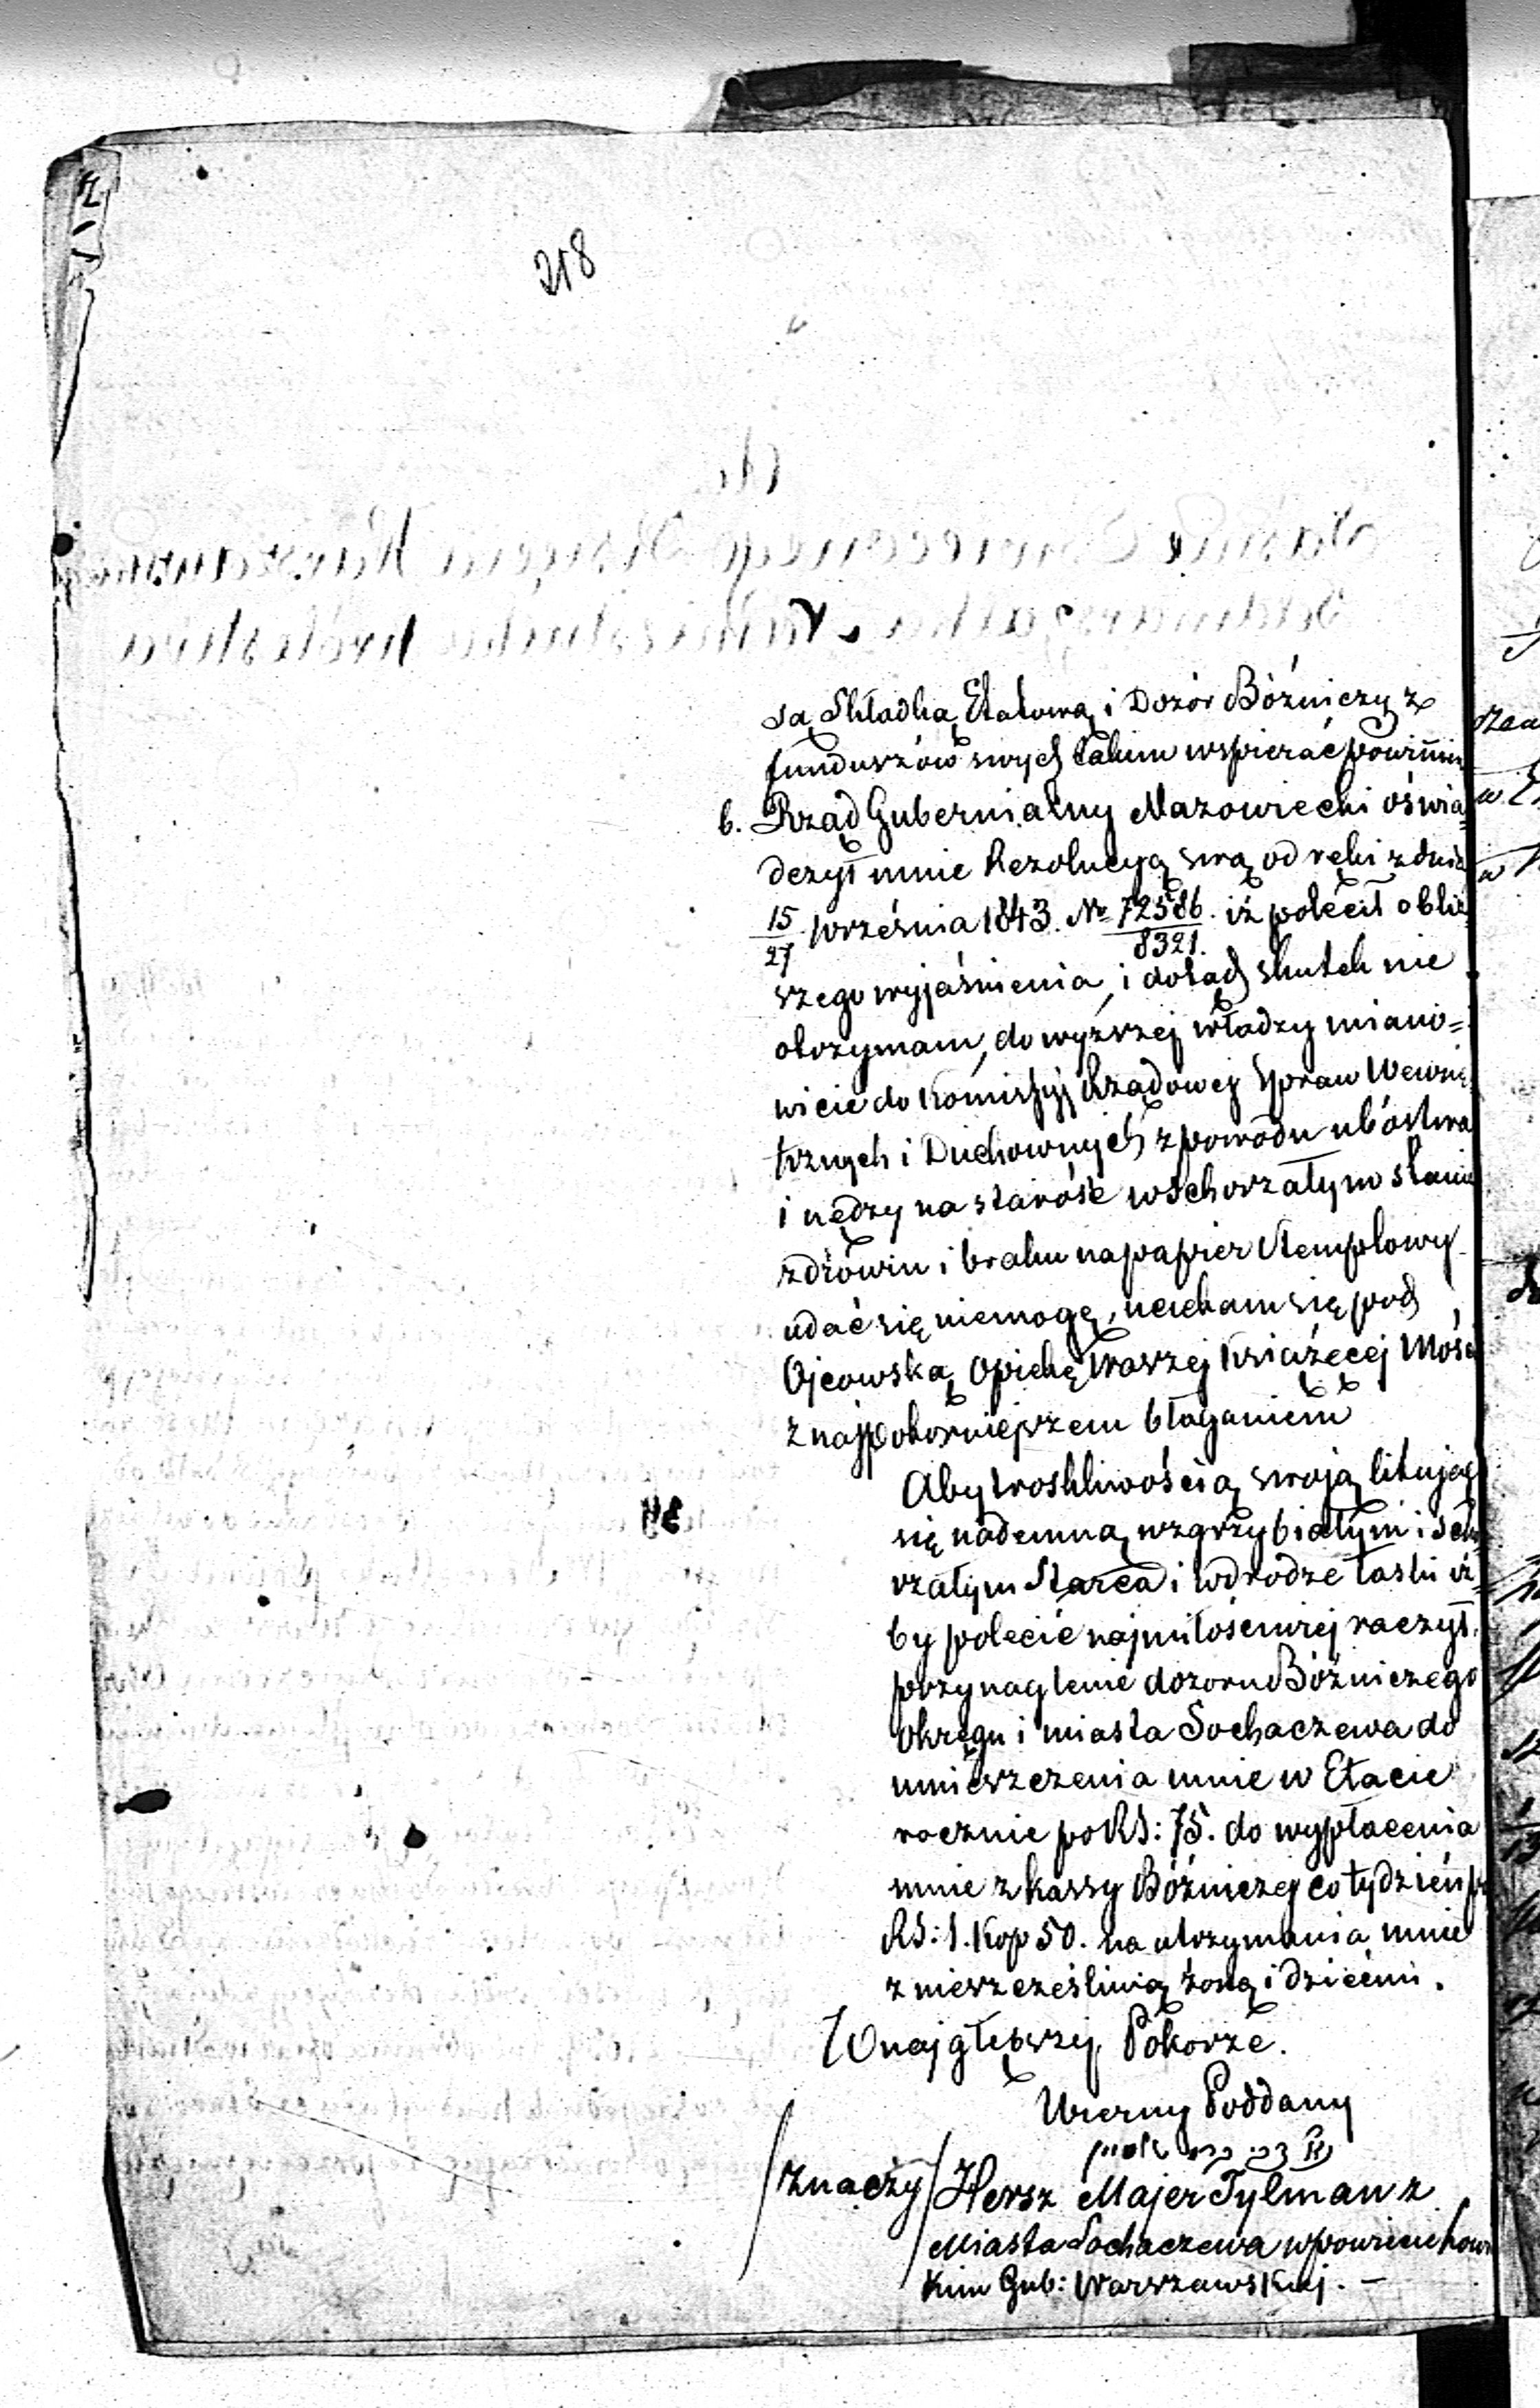 218
są Składką Etatową i Dozór Bóżniczy z
funduszów swych takim wspierać powinien
6. Rząd Gubernialny Mazowiecki oświa=
dczył mnie Rezolucyą swą od ręki z dnia
15/27 września 1843. Nr 72586/8321. iż polecił obliż
szego wyjaśnienia, i dotąd skutek nie
otrzymam, do wyższej władzy miano=
wicie do Komissyj Rządowej Spraw Wewnę
trznych i Duchownych z powodu ubóstwa
i nędzy na starość w schorzałym stanie
zdrowiu i braku na papier stemplowy
udać się niemogę, uciekam się pod
Ojcowską Opiekę Waszej Książęcej Mości
z najpokorniejszem błaganiem
Aby troskliwością swoją litując
się nademną wzgrzybiałym i scho
rzałym Starca i w drodze łaski iż=
by polecić najmiłościwiej raczył.
przynaglenie dozoru Bóżniczego
Okręgu i miasta Sochaczewa do
umieszczenia mnie w Etacie
rocznie po RS: 75. do wypłacenia
mnie z kassy Bóżniczej co tydzień po
RS: 1. Kop 50. na utrzymania mnie
z nieszcześliwią żoną i dziećmi.
W najgłębszej Pokorze.
Wierny Poddany
/znaczy/ Hersz Majer Tylman z
Miasta Sochaczewa w powiecie Łowi
kim Gub: Warszawskiej. –